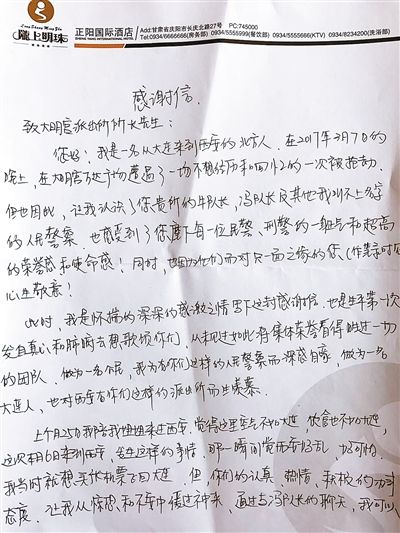 陇上明珠
正阳国际酒店
ZHENG YANG INTERNATIONAL HOTEL
Add:甘肃省庆阳市长庆北路27号 PC:745000
Tel:0934/6666666(房务部) 0934/5555999(餐饮部) 0934/5555666(KTV) 0934/8234200(洗浴部)
感谢信
致大明宫派出所所长先生:
您好!我是一名从大连来到西安的北方人,在2017年3月7日的
晚上,在大明宫万达广场遭遇了一场不想经历和回忆的一次被抢劫。
但也因此,让我认识了您贵所的牛队长,冯队长及其他我叫不上名字
的人民警察。也感受到了您麾下每一位民警、刑警的一身正气和超高
的荣誉感和使命感!同时,也因为他们而对只一面之缘的您
心生敬意!
此时,我是怀揣的深深的感激之情写下这封感谢信,也是生平第一次
发自真心和肺腑去想歌颂你们,从未见过如此将集体荣誉看得胜过一切
的团队。做为一名公民,我为有你们这样的人民警察而深感自豪,做为一名
大连人,也对西安有你们这样的派出所而生羡慕。
上个月25日我陪我姐姐来过西安,觉得这里空气不如大连,饮食也不如大连,
这次本月6日来到西安,发生这样的事情,那一瞬间觉西安好乱,好可怕。
我当时就想买张机票飞回大连。但,你们的认真、热情、积极的办
态度,让我从惊恐和不安中缓过神来,通过与冯队长的聊天,我可以